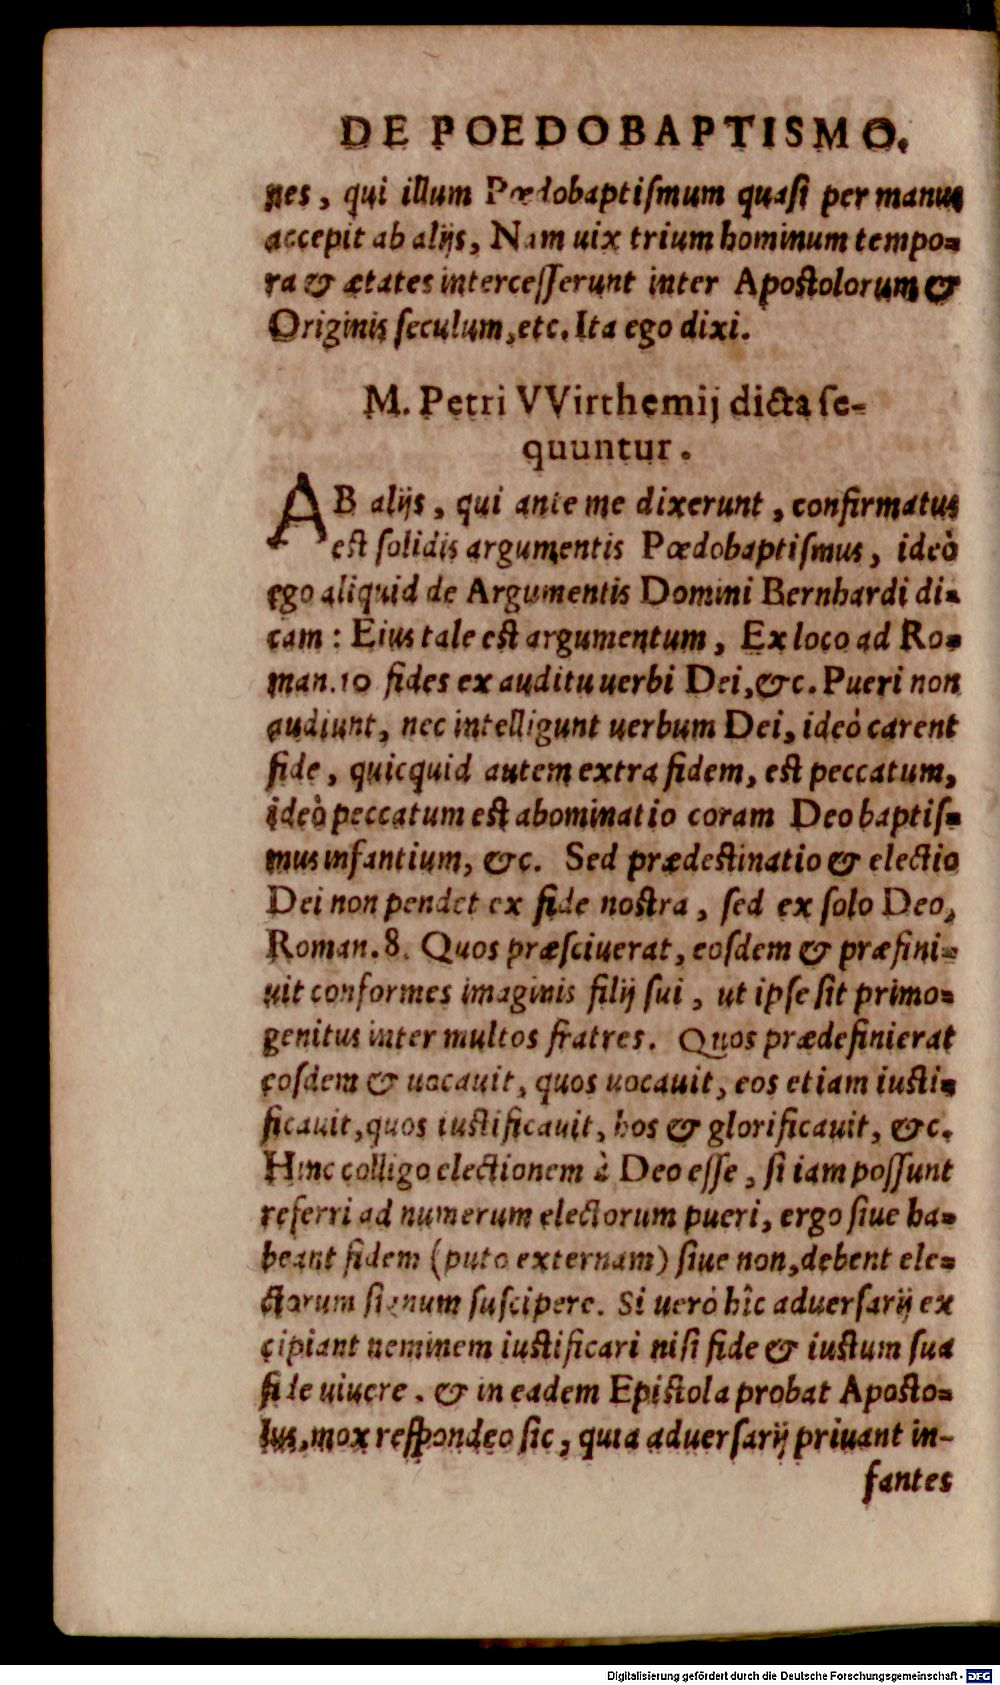 DE POEDOBAPTISMO.
nes, qui illum Pœdobaptiſmum quaſi per manus
accepit ab alijs, Nam uix trium hominum tempo-
ra & ætates interceſſerunt inter Apoſtolorum &
Originis ſeculum, etc. Ita ego dixi.
M. Petri VVirthemij dicta ſe-
quuntur.
AB alijs, qui ante me dixerunt, confirmatus
eſt ſolidis argumentis Pœdobaptiſmus, ideò
ego aliquid de Argumentis Domini Bernhardi di-
cam: Eius tale eſt argumentum, Ex loco ad Ro-
man. 10 fides ex auditu uerbi Dei, &c. Pueri non
audiunt, nec intelligunt uerbum Dei, ideò carent
fide, quicquid autem extra fidem, eſt peccatum,
ideò peccatum eſt abominatio coram Deo baptiſ-
mus infantium, &c. Sed prædeſtinatio & electio
Dei non pendet ex fide noſtra, ſed ex ſolo Deo,
Roman. 8. Quos præſciuerat, eoſdem & præfini-
uit conformes imaginis filij ſui, ut ipſe ſit primo-
genitus inter multos fratres. Quos prædefinierat
eoſdem & uocauit, quos uocauit, eos etiam iuſti-
ficauit, quos iuſtificauit, hos & glorificauit, &c.
Hinc colligo electionem à Deo eſſe, ſi iam poſſunt
referri ad numerum electorum pueri, ergo ſiue ha-
beant fidem (puto externam) ſiue non, debent ele-
ctorum ſignum ſuſcipere. Si uerò hîc aduerſarij ex
cipiant neminem iuſtificari niſi fide & iuſtum ſua
fide uiuere. & in eadem Epiſtola probat Apoſto-
lus, mox reſpondeo ſic, quia aduerſarij priuant in-
fantes
Digitalisierung gefördert durch die Deutsche Forschungsgemeinschaft - DFG